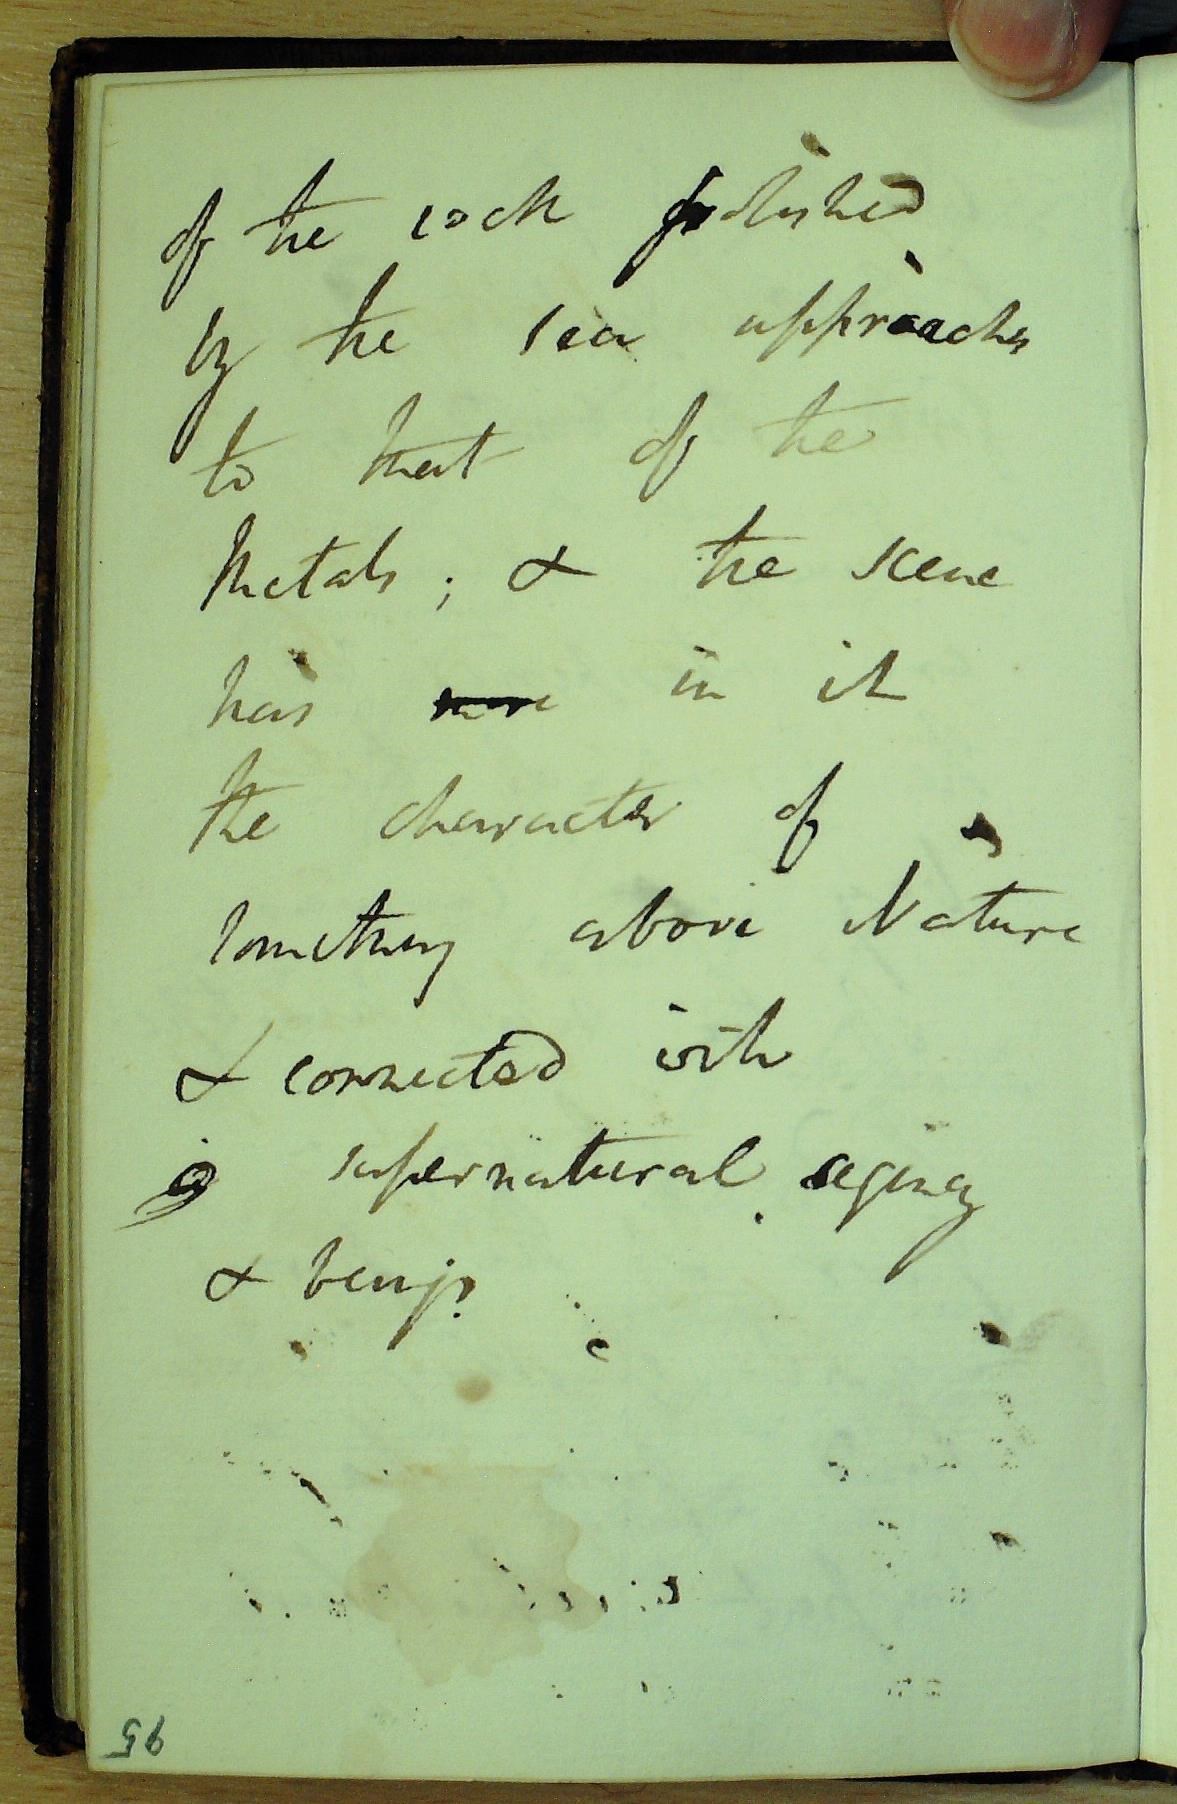 of the rock polished
by the sea approaches
to that of the
Metals; & the scene
has more in it
the character of
something above Nature
& connected with
supernatural agency
& beings.
95